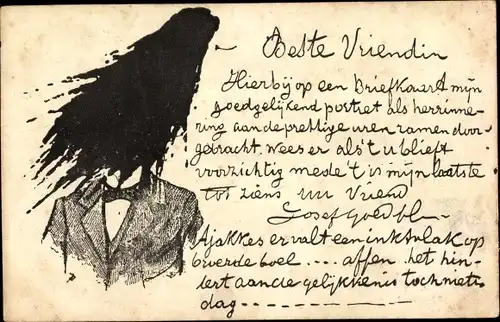 Beste Vriendin
Hierbij op een Briefkaart mijn
goedgelijkend portret als herrinne-
ring aan de prettige uren zamen door-
gedracht, wees er als't u blieft
voorzichtig mede 't is mijn laatste
tot ziens uw Vriend
Josef
Ajakkes er valt een inktvlak op
de boel .... affen .het hin-
dert aan de gelijkkenis toch niets
dag ---------